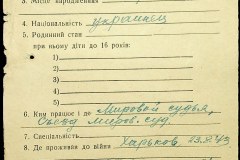 3. Місце народження
4. Національність украинец
5. Родинний стан
при ньому діти до 16 років:
1)
2)
3)
4)
5)
6. Ким працює і де Мировой судья,
миров. суд.
7. Спеціяльність
8. Де проживав до війни Харьков